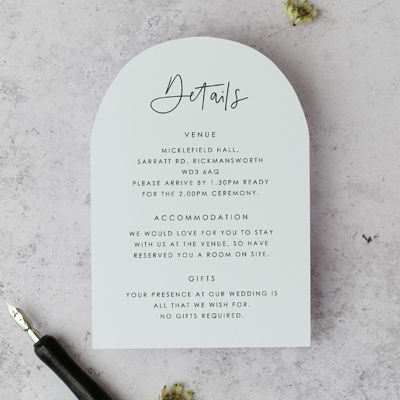 Details
VENUE
MICKLEFIELD HALL,
SARRATT RD, RICKMANSWORTH
WD3 6AQ
PLEASE ARRIVE BY 1.30PM READY
FOR THE 2.00PM CEREMONY.
ACCOMMODATION
WE WOULD LOVE FOR YOU TO STAY
WITH US AT THE VENUE, SO HAVE
RESERVED YOU A ROOM ON SITE.
GIFTS
YOUR PRESENCE AT OUR WEDDING IS
ALL THAT WE WISH FOR,
NO GIFTS REQUIRED.